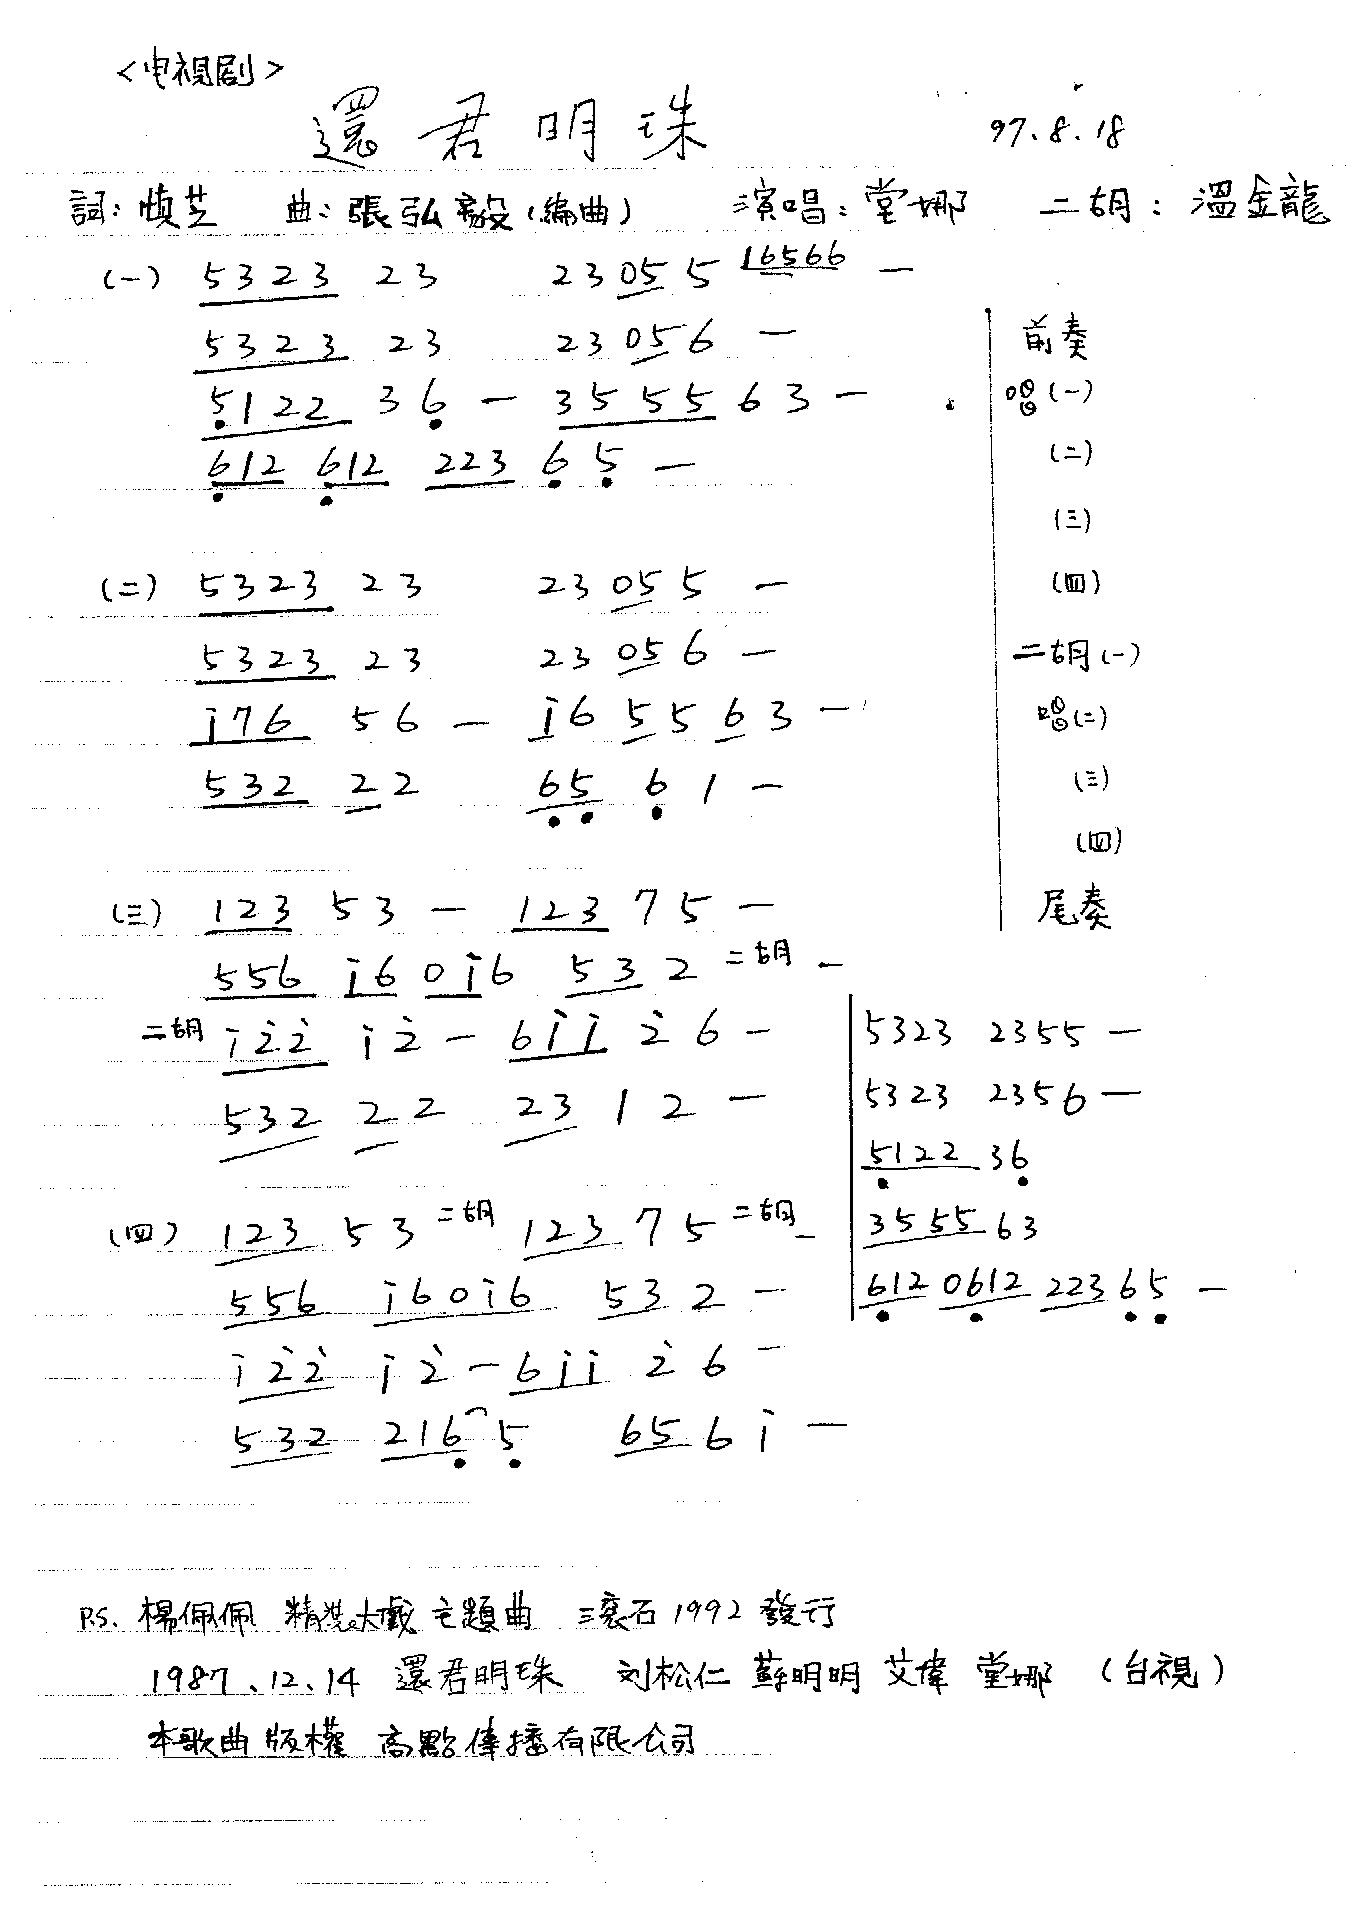 <电視剧>
還君明珠
97.8.18
詞：慎芝 曲：張弘毅（編曲） 演唱：堂娜 二胡：溫金龍
(一) 5323 23 23055 16566 —
5323 23 23056 —
5̣122 36̣ — 3555 63 —
6̣12 6̣12 223 6̣ 5̣ —
(二) 5323 23 23055 —
5323 23 23056 —
i76 56 — i6 55 63 —
532 22 6̣5̣ 6̣1 —
(三) 123 53 — 123 75 —
556 i6 0i6 532 二胡 —
二胡 i2̇2̇ i2̇ — 6ii 2̇6 —
532 22 23 12 —
(四) 123 53 二胡 123 75 二胡 —
556 i60i6 532 —
i2̇2̇ i2̇ — 6ii 2̇6 —
532 216̣5̣ 656i —
前奏
唱(一)
(二)
(三)
(四)
二胡(一)
唱(二)
(三)
(四)
尾奏
5323 2355 —
5323 2356 —
5̣122 36̣
3555 63
6̣12 06̣12 2236̣5̣ —
P.S. 楊佩佩 精裝大戲 主題曲 滾石1992發行
1987.12.14 還君明珠 刘松仁 蘇明明 艾偉 堂娜 （台視）
本歌曲版權 高點傳播有限公司